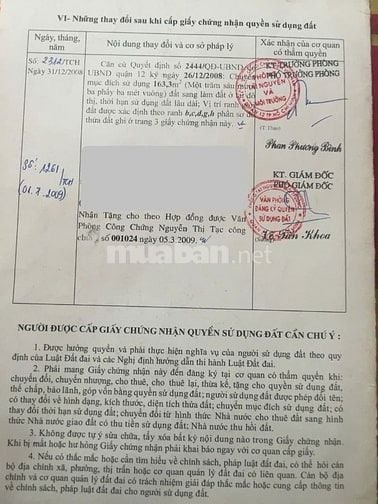 VI- Những thay đổi sau khi cấp giấy chứng nhận quyền sử dụng đất
Ngày, tháng, năm
Nội dung thay đổi và cơ sở pháp lý
Xác nhận của cơ quan có thẩm quyền
Số: 2312/TCH
Ngày 31/12/2008
Căn cứ Quyết định số 2444/QĐ-UBND
UBND quận 12 ký ngày 26/12/2008: Chuyển
mục đích sử dụng 163,3m² (Một trăm sáu mươi
ba phẩy ba mét vuông) đất sang làm đất ở tại đô
thị, thời hạn sử dụng đất lâu dài; Vị trí ranh
đất được xác định theo ranh b,c,d,g,h phần sơ đồ
thửa đất ghi ở trang 3 giấy chứng nhận này.
KT. TRƯỞNG PHÒNG
PHÓ TRƯỞNG PHÒNG
PHÒNG
TÀI NGUYÊN
VÀ
MÔI TRƯỜNG
Phan Phương Bình
Số: 1261/TCH
(01.7.2009)
Nhận Tặng cho theo Hợp đồng được Văn
Phòng Công Chứng Nguyễn Thị Tạc công
chứng số 001024 ngày 05.3.2009.
KT. GIÁM ĐỐC
PHÓ GIÁM ĐỐC
VĂN PHÒNG
ĐĂNG KÝ QUYỀN
SỬ DỤNG ĐẤT
Khoa
muaban.net
NGƯỜI ĐƯỢC CẤP GIẤY CHỨNG NHẬN QUYỀN SỬ DỤNG ĐẤT CẦN CHÚ Ý :
1. Được hưởng quyền và phải thực hiện nghĩa vụ của người sử dụng đất theo quy
định của Luật Đất đai và các Nghị định hướng dẫn thi hành Luật Đất đai.
2. Phải mang Giấy chứng nhận này đến đăng ký tại cơ quan có thẩm quyền khi:
chuyển đổi, chuyển nhượng, cho thuê, cho thuê lại, thừa kế, tặng cho quyền sử dụng đất,
thế chấp, bảo lãnh, góp vốn bằng quyền sử dụng đất; người sử dụng đất được phép đổi tên;
có thay đổi về hình dạng, kích thước, diện tích thửa đất; chuyển mục đích sử dụng đất; có
thay đổi thời hạn sử dụng đất; chuyển đổi từ hình thức Nhà nước cho thuê đất sang hình
thức Nhà nước giao đất có thu tiền sử dụng đất; Nhà nước thu hồi đất.
3. Không được tự ý sửa chữa, tẩy xóa bất kỳ nội dung nào trong Giấy chứng nhận.
Khi bị mất hoặc hư hỏng Giấy chứng nhận phải khai báo ngay với cơ quan cấp giấy.
4. Nếu có thắc mắc hoặc cần tìm hiểu về chính sách, pháp luật đất đai, có thể hỏi cán
bộ địa chính xã, phường, thị trấn hoặc cơ quan quản lý đất đai có liên quan. Cán bộ địa
chính và cơ quan quản lý đất đai có trách nhiệm giải đáp thắc mắc hoặc cung cấp thông tin
về chính sách, pháp luật đất đai cho người sử dụng đất.